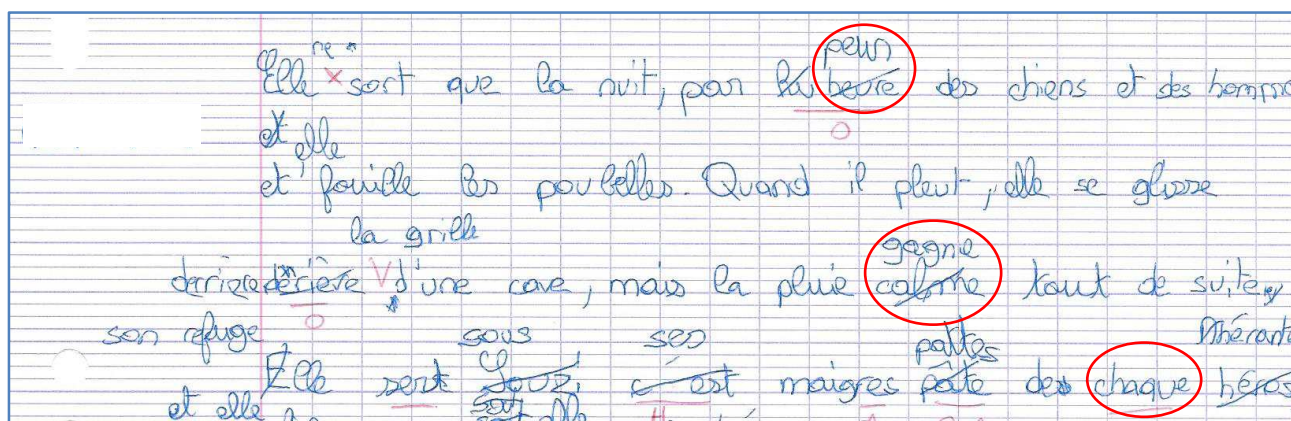 ne *
peur
Elle × sort que la nuit, par la beure des chiens et des homme
et elle
et fouille les poubelles. Quand il pleut, elle se glisse
la grille
gagne
derriere derière V d'une cave, mais la pluie calme tout de suite
son refuge sous ses pattes
Elle sent c'est maigres pate des chaque héros
et elle